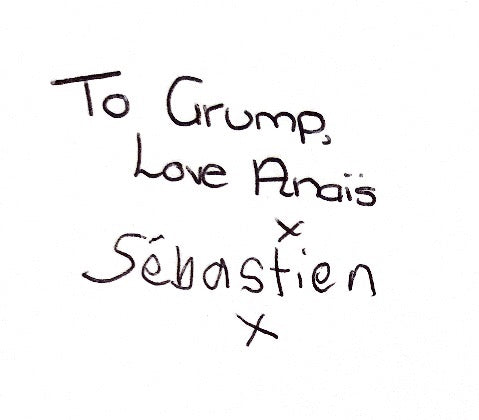 To Grump,
Love Anaïs
x
Sébastien
x